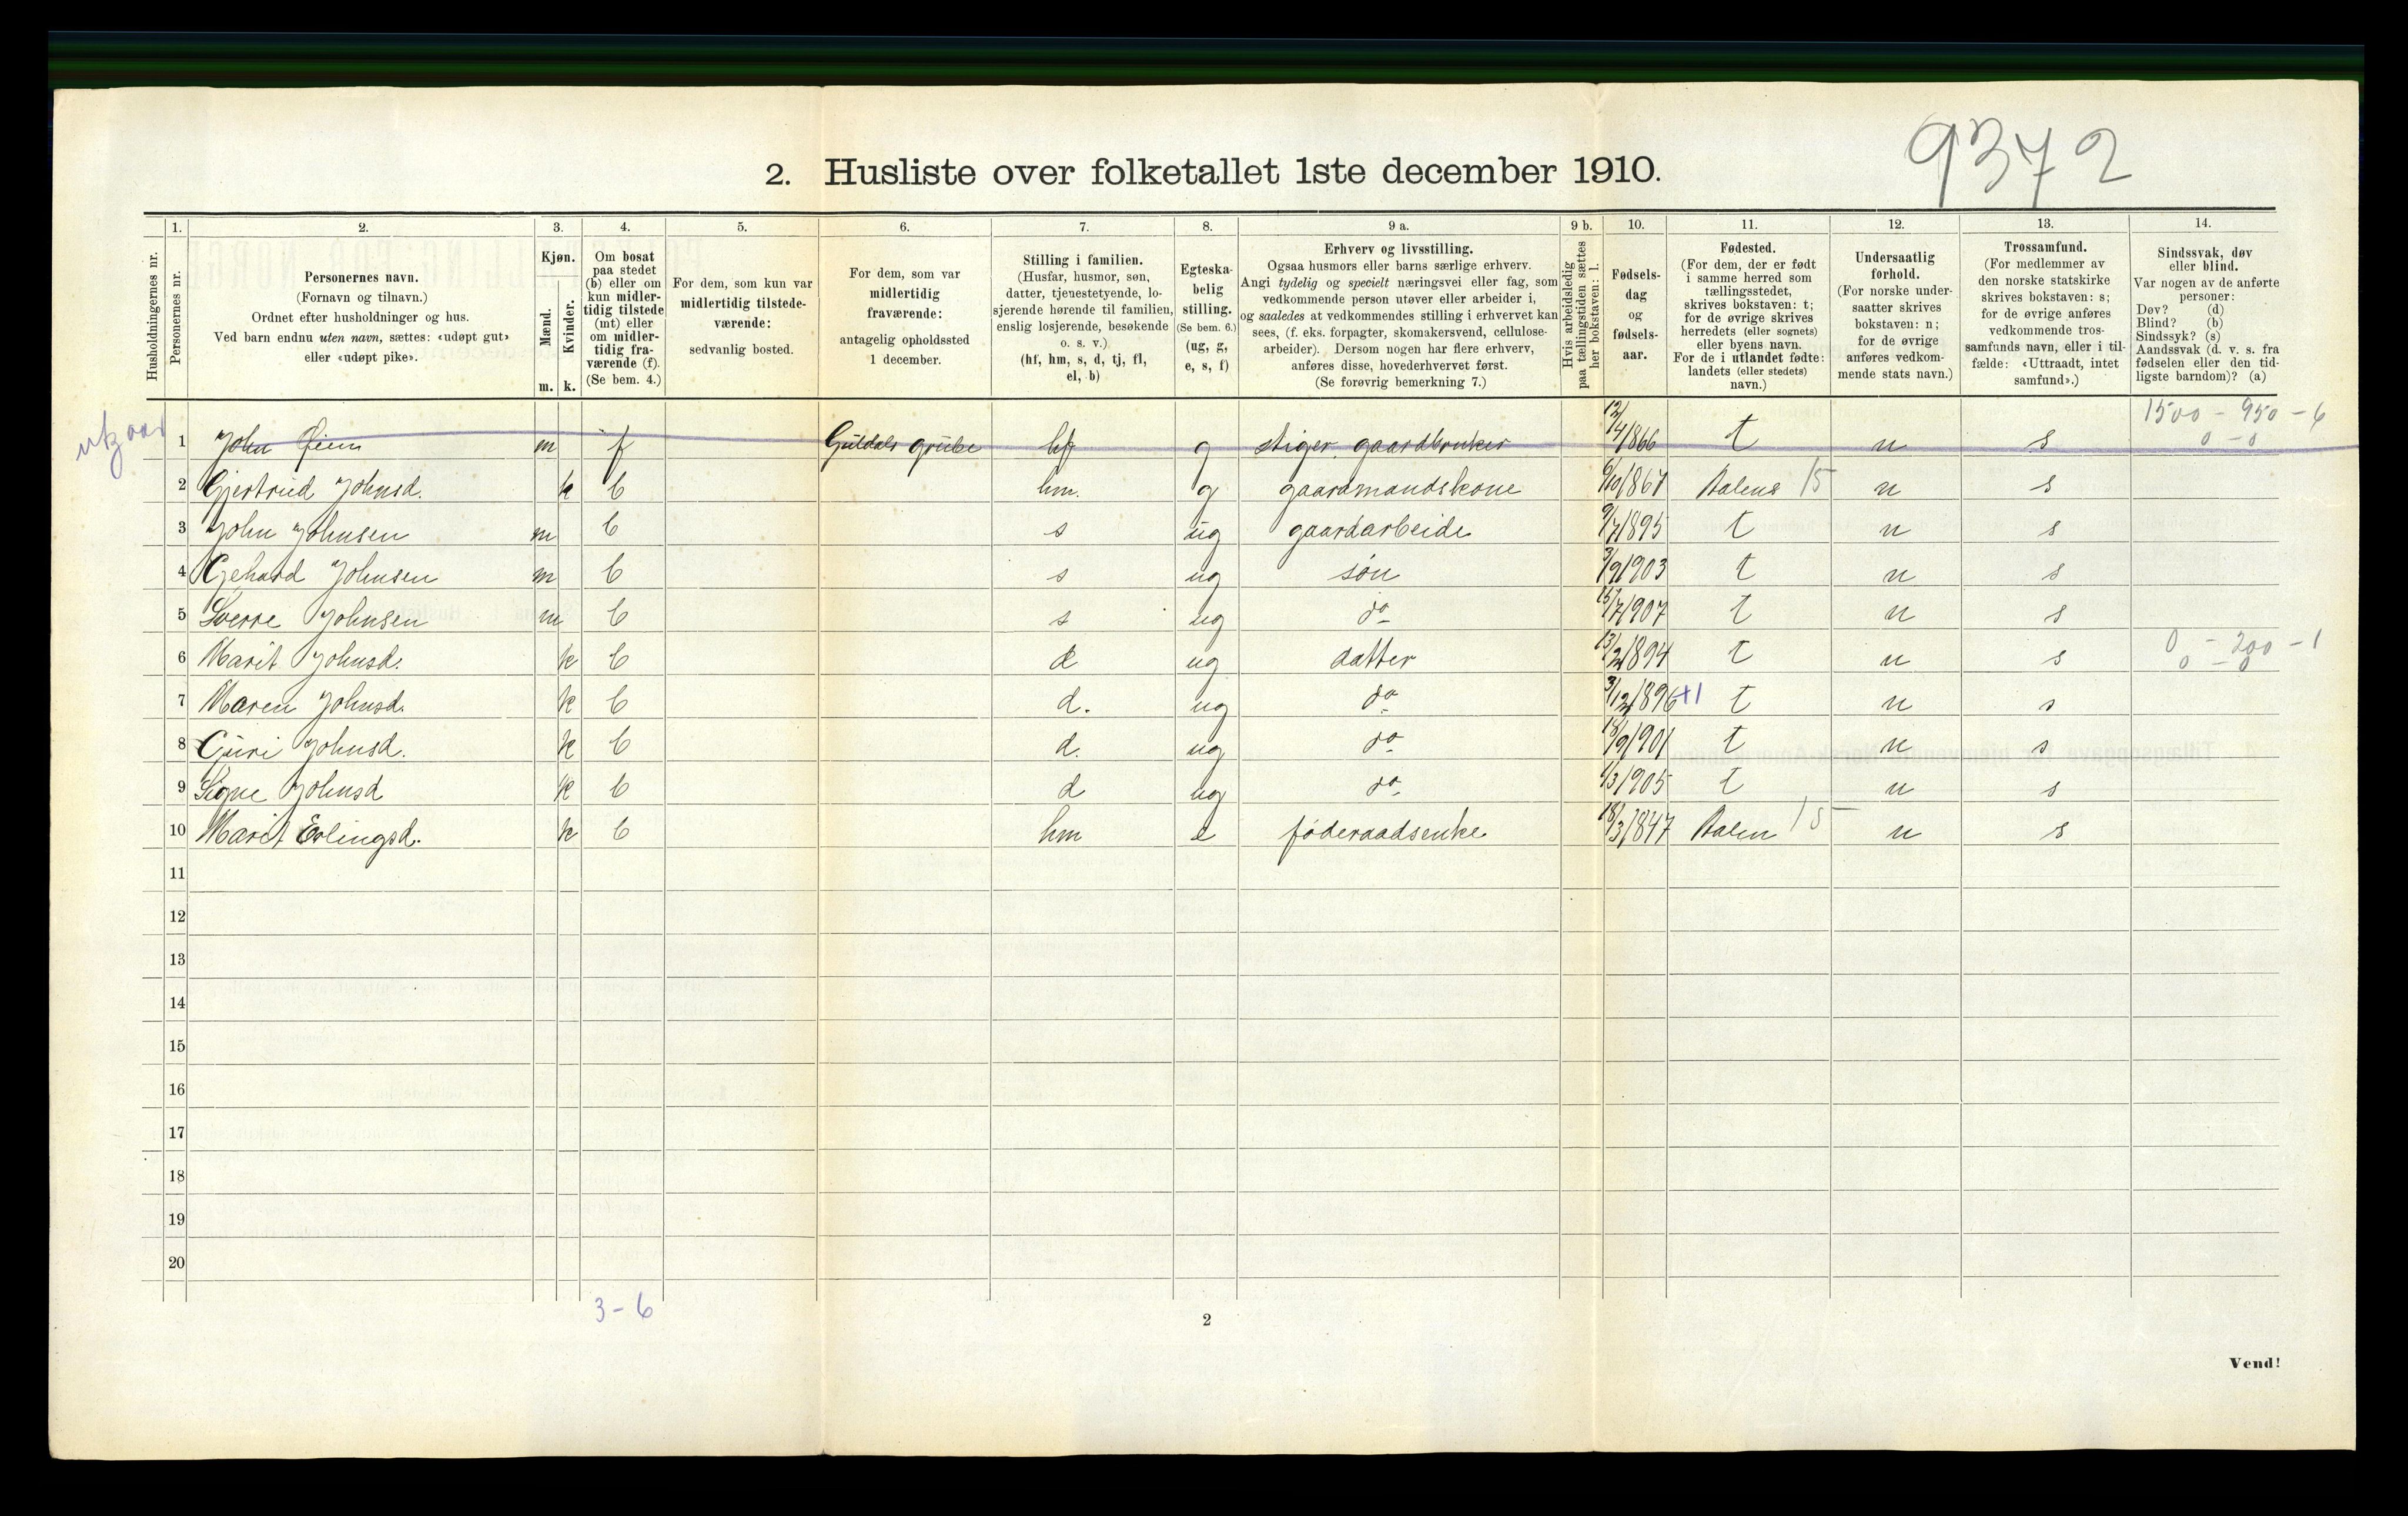 9372
2. Husliste over folketallet 1ste december 1910.
1. 2. 3. 4. 5. 6. 7. 8. 9 a. 9 b. 10. 11. 12. 13. 14.
Husholdningernes nr.
Personernes nr.
Personernes navn.
(Fornavn og tilnavn.)
Ordnet efter husholdninger og hus.
Ved barn endnu uten navn, sættes: «udøpt gut»
eller «udøpt pike».
Kjøn.
Mænd.
Kvinder.
m. k.
Om bosat
paa stedet
(b) eller om
kun midler-
tidig tilstede
(mt) eller
om midler-
tidig fra-
værende (f).
(Se bem. 4.)
For dem, som kun var
midlertidig tilstede-
værende:
sedvanlig bosted.
For dem, som var
midlertidig
fraværende:
antagelig opholdssted
1 december.
Stilling i familien.
(Husfar, husmor, søn,
datter, tjenestetyende, lo-
sjerende hørende til familien,
enslig losjerende, besøkende
o. s. v.)
(hf, hm, s, d, tj, fl,
el, b)
Egteska-
belig
stilling.
(Se bem. 6.)
(ug, g,
e, s, f)
Erhverv og livsstilling.
Ogsaa husmors eller barns særlige erhverv.
Angi tydelig og specielt næringsvei eller fag, som
vedkommende person utøver eller arbeider i,
og saaledes at vedkommendes stilling i erhvervet kan
sees, (f. eks. forpagter, skomakersvend, cellulose-
arbeider). Dersom nogen har flere erhverv,
anføres disse, hovederhvervet først.
(Se forøvrig bemerkning 7.)
Hvis arbeidsledig
paa tællingstiden sættes
her bokstaven: l.
Fødsels-
dag
og
fødsels-
aar.
Fødested.
(For dem, der er født
i samme herred som
tællingsstedet,
skrives bokstaven: t;
for de øvrige skrives
herredets (eller sognets)
eller byens navn.
For de i utlandet fødte:
landets (eller stedets)
navn.)
Undersaatlig
forhold.
(For norske under-
saatter skrives
bokstaven: n;
for de øvrige
anføres vedkom-
mende stats navn.)
Trossamfund.
(For medlemmer av
den norske statskirke
skrives bokstaven: s;
for de øvrige anføres
vedkommende tros-
samfunds navn, eller i til-
fælde: «Uttraadt, intet
samfund».)
Sindssvak, døv
eller blind.
Var nogen av de anførte
personer:
Døv? (d)
Blind? (b)
Sindssyk? (s)
Aandssvak (d. v. s. fra
fødselen eller den tid-
ligste barndom)? (a)
1500 - 950 - 6
0 - 0
1 John Øien m f Guldals grube hf g stiger. gaardbruker 12/4/866 t n s
2 Gjertrud Johnsd. k b hm. g gaardmandskone 6/10/867 Aalens 15 n s
3 John Johnsen m b s ug gaardarbeide 9/7/895 t n s
4 Gehard Johnsen m b s ug søn 3/9/903 t n s
5 Sverre Johnsen m b s ug do 15/7/907 t n s
6 Marit Johnsd. k b d ug datter 13/2/894 t n s 0 - 200 - 1
0 - 0
7 Maren Johnsd. k b d. ug do 3/12/896 +1 t n s
8 Guri Johnsd. k b d. ug do 18/9/901 t n s
9 Signe Johnsd k b d ug do 1/3/905 t n s
10 Marit Erlingsd. k b hm e føderaadsenke 18/3/847 Aalen 15 n s
11
12
13
14
15
16
17
18
19
20
3 - 6
2
Vend!